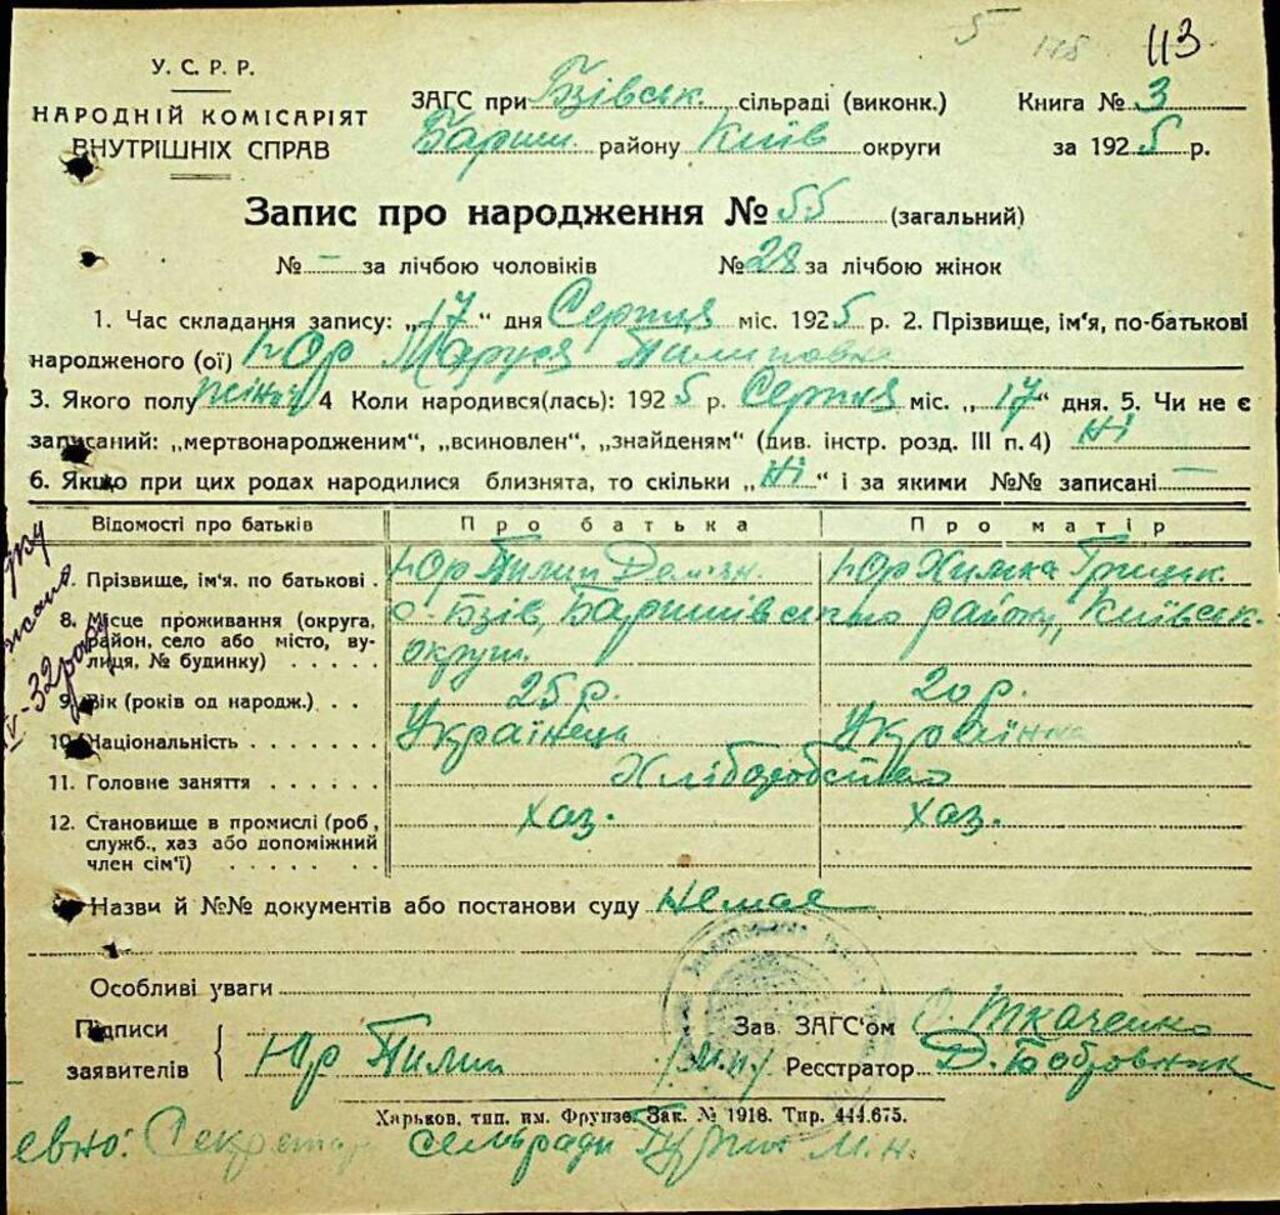 5 148 113
У. С. Р. Р.
НАРОДНІЙ КОМІСАРІЯТ
ВНУТРІШНІХ СПРАВ
ЗАГС при Бзівськ. сільраді (виконк.) Книга № 3
Бариш. району Київ округи за 1925 р.
Запис про народження № 55 (загальний)
№ – за лічбою чоловіків № 28 за лічбою жінок
1. Час складання запису: „17“ дня Серпня міс. 1925 р. 2. Прізвище, ім‘я, по-батькові
народженого (ої) Юр Маруся Пилиповна
3. Якого полу жіноч 4 Коли народився(лась): 1925 р. Серпня міс. „17“ дня. 5. Чи не є
записаний: „мертвонародженим“, „всиновлен“, „знайденям“ (див. інстр. розд. III п. 4) Ні
6. Якщо при цих родах народилися близнята, то скільки „Ні“ і за якими №№ записані –
Відомості про батьків Про батька Про матір
7. Прізвище, ім‘я. по батькові . Юр Пилип Дем‘ян. Юр Химка Грицьк.
8. Місце проживання (округа, с. Бзів, Баришівського району, Київськ.
район, село або місто, ву-
лиця, № будинку) . . . . . округи.
9. Вік (років од народж.) . . 25 р. 20 р.
10. Національність . . . . . . . Українець Українка
11. Головне заняття . . . . . . Хліборобство
12. Становище в промислі (роб., хаз. хаз.
служб., хаз або допоміжний
член сім‘ї) . . . . . .
Назви й №№ документів або постанови суду немає
Особливі уваги
Підписи
заявителів Юр Пилип
Зав. ЗАГС‘ом О. Ткаченко
/М.п./ Реєстратор Д. Бобровник
Харьков, тип. им. Фрунзе. Зак. № 1918. Тир. 444.675.
евно: Секретар сельради